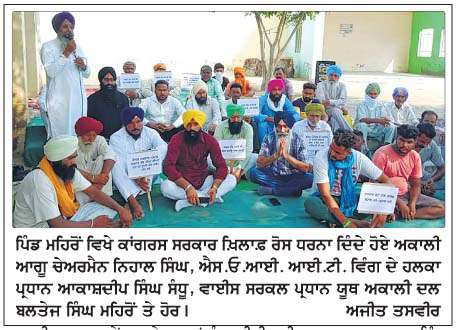 ਪਿੰਡ ਮਹਿਰੋਂ ਵਿਖੇ ਕਾਂਗਰਸ ਸਰਕਾਰ ਖ਼ਿਲਾਫ਼ ਰੋਸ ਧਰਨਾ ਦਿੰਦੇ ਹੋਏ ਅਕਾਲੀ
ਆਗੂ ਚੇਅਰਮੈਨ ਨਿਹਾਲ ਸਿੰਘ, ਐਸ.ਓ.ਆਈ. ਆਈ.ਟੀ. ਵਿੰਗ ਦੇ ਹਲਕਾ
ਪ੍ਰਧਾਨ ਆਕਾਸ਼ਦੀਪ ਸਿੰਘ ਸੰਧੂ, ਵਾਈਸ ਸਰਕਲ ਪ੍ਰਧਾਨ ਯੂਥ ਅਕਾਲੀ ਦਲ
ਬਲਤੇਜ ਸਿੰਘ ਮਹਿਰੋਂ ਤੇ ਹੋਰ। ਅਜੀਤ ਤਸਵੀਰ